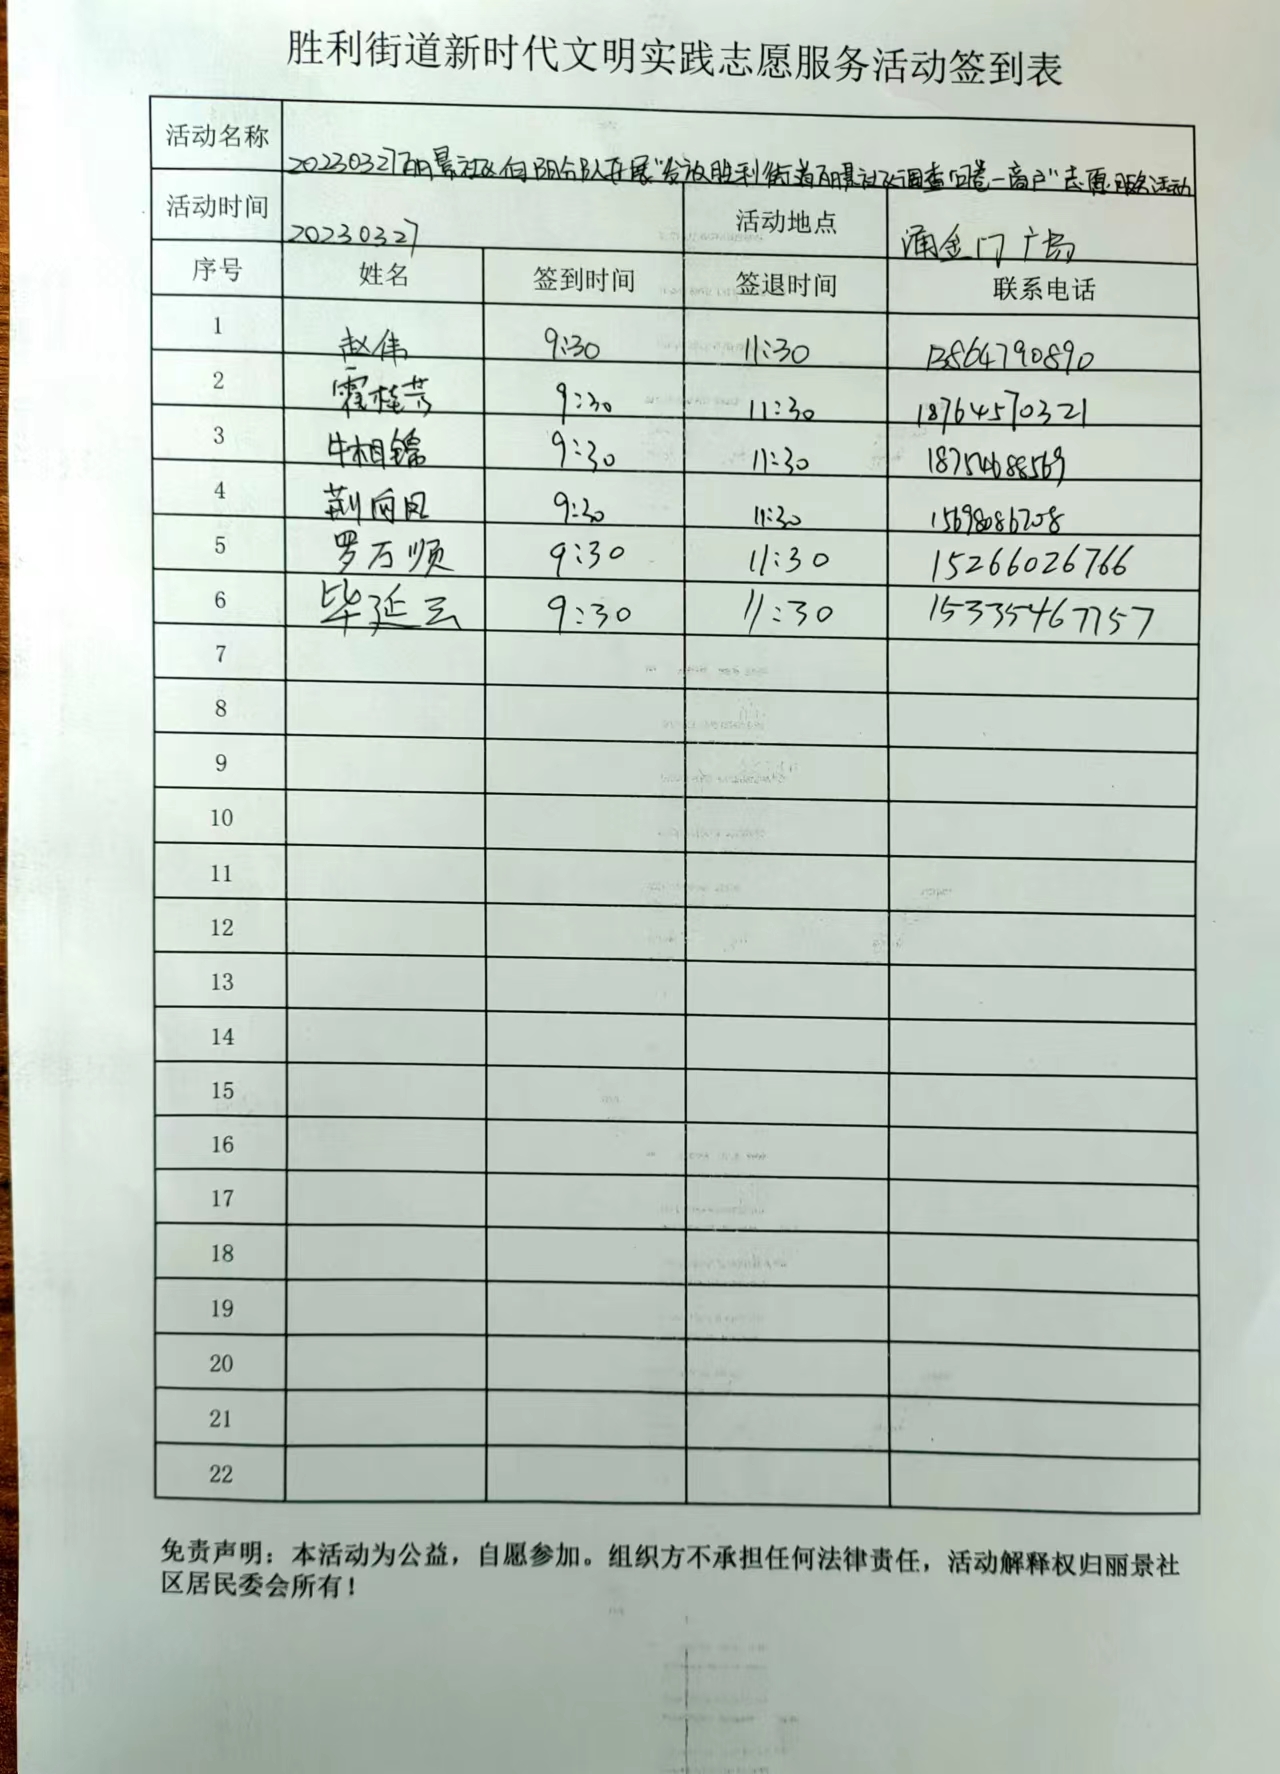 胜利街道新时代文明实践志愿服务活动签到表
活动名称 20230327丽景社区向阳分队开展“发放胜利街道丽景社区调查问卷一商户”志愿服务活动
活动时间 20230327 活动地点 涌金门广场
序号 姓名 签到时间 签退时间 联系电话
1 赵伟 9:30 11:30 13864790890
2 霍桂芳 9:30 11:30 18764570321
3 牛相锦 9:30 11:30 18754688569
4 荆向凤 9:30 11:30 15698086708
5 罗万顺 9:30 11:30 15266026766
6 毕延云 9:30 11:30 15335467757
7
8
9
10
11
12
13
14
15
16
17
18
19
20
21
22
免责声明：本活动为公益，自愿参加。组织方不承担任何法律责任，活动解释权归丽景社
区居民委会所有！